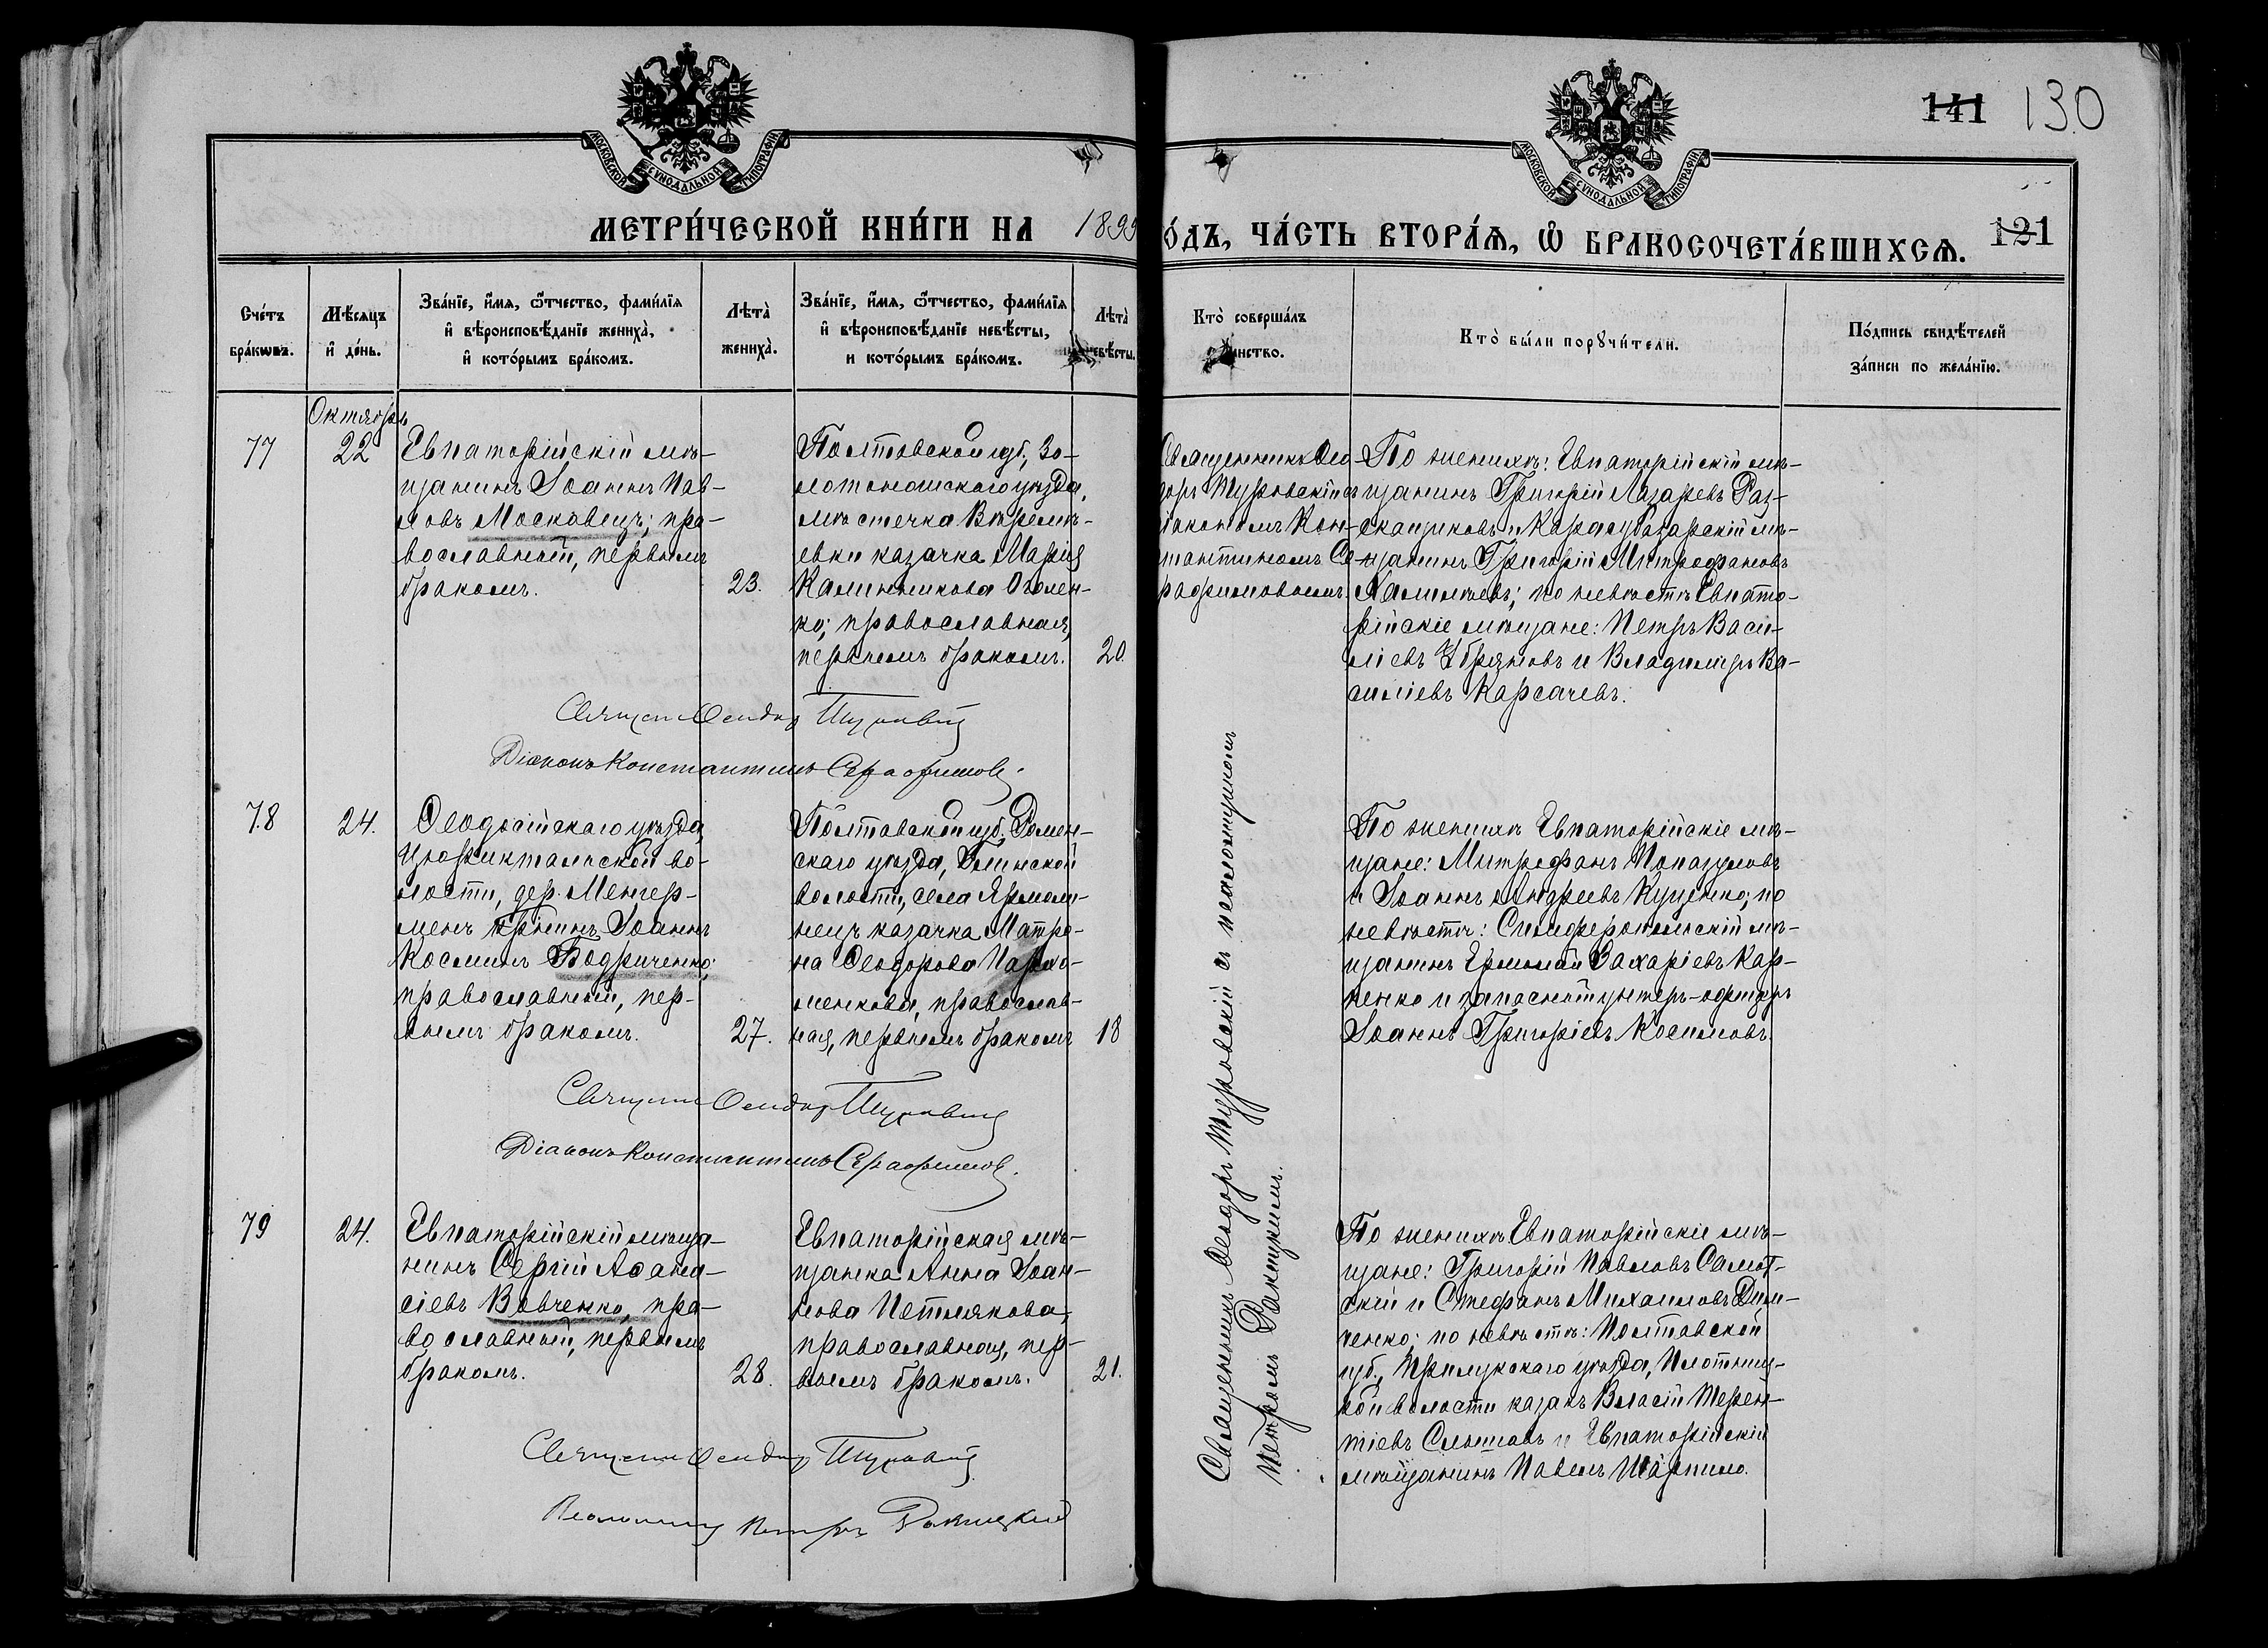 141 130
МОСКОВСКОЙ СѴНОДАЛЬНОЙ ТИПОГРАФІИ
МОСКОВСКОЙ СѴНОДАЛЬНОЙ ТИПОГРАФІИ
МЕТРИ́ЧЕСКОЙ КНИ́ГИ НА 1899
О́ДЪ, ЧА́СТЬ ВТОРА́Ѧ, Ѡ҆ БРАКОСОЧЕТА́ВШИХСѦ. 121
Сче́тъ бра́кѡвъ.
Мѣ́сяцъ и҆ де́нь.
Зва́нїе, и҆́мя, ѻ҆́тчество, фами́лїя
и҆ вѣроисповѣ́данїе жениха̀,
и҆ кото́рымъ бра́комъ.
Лѣта̀ жениха̀.
Зва́нїе, и҆́мя, ѻ҆́тчество, фами́лїя
и҆ вѣроисповѣ́данїе невѣ́сты,
и кото́рымъ бра́комъ.
Лѣта̀ невѣ́сты.
Кто̀ соверша́лъ
инство.
Кто̀ бы́ли порꙋчи́тели.
По́дпись свидѣ́телей
за́писи по жела́нїю.
Октябрь
77
22
Евпаторійскій мѣ-
щанинъ Іоаннъ Пав-
ловъ Московецъ; пра-
вославный, первымъ
бракомъ.
23.
Полтавской губ., Зо-
лотоношскаго уѣзда,
мѣстечка Вѣремѣ-
евки казачка Марія
Калинникова Оголен-
ко; православная,
первымъ бракомъ.
20.
Священникъ Ѳео-
доръ Туровскій съ
діакономъ Кон-
стантиномъ Се-
рафимовымъ.
По женихѣ: Евпаторійскій мѣ-
щанинъ Григорій Лазаревъ Раз-
скащиковъ и Карасубазарскій мѣ-
щанинъ Григорій Митрофановъ
по невѣстѣ Евпато-
рійскіе мѣщане: Петръ Васи-
ліевъ и Владиміръ Ва-
силіевъ Карсачевъ.
Священ Ѳеодор Туровскій
Діаконъ Константинъ Серафимовъ.
78
24.
Ѳеодосійскаго уѣзда,
во-
лости, дер. Менгер-
менъ Іоаннъ
Косминъ Бодриченко;
православный, пер-
вымъ бракомъ.
27.
Полтавской губ., Ромен-
скаго уѣзда,
волости, села Ярмоли-
нецъ казачка Матро-
на Ѳеодорова Пархо-
менкова, православ-
ная, первымъ бракомъ
18
По женихѣ Евпаторійскіе мѣ-
щане: Митрофанъ
и Іоаннъ Андреевъ Куценко; по
невѣстѣ: Симферопольскій мѣ-
щанинъ Ермолай Захаріевъ Кар-
пенко и запасный унтеръ-офицеръ
Іоаннъ Григоріевъ Косимовъ.
Священ Ѳеодор Туровскій
Діаконъ Константинъ Серафимовъ.
79
24.
Евпаторійскій мѣща-
нинъ Сергій Аѳана-
сіевъ Вовченко, пра-
вославный, первымъ
бракомъ.
28.
Евпаторійская мѣ-
щанка Анна Іоан-
нова Петлякова,
православная, пер-
вымъ бракомъ.
21.
Священникъ Ѳеодоръ Туровскій съ псаломщикомъ
Петромъ
По женихѣ Евпаторійскіе мѣ-
щане: Григорій Павловъ
и Стефанъ Михаиловъ Дим-
ченко; по невѣстѣ: Полтавской
губ., Прилукскаго уѣзда,
волости казакъ Власій Терен-
тіевъ и Евпаторійскій
мѣщанинъ Павелъ Шарпило.
Священ Ѳеодор Туровскій
Псаломщ Петръ Ракицкій